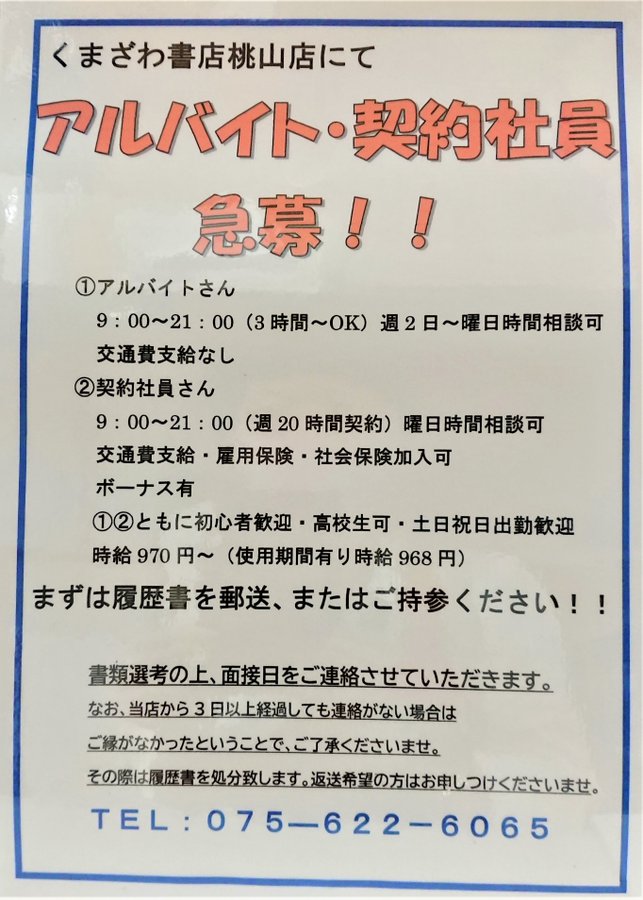 くまざわ書店桃山店にて
アルバイト・契約社員
急募！！
①アルバイトさん
9：00～21：00（3時間～OK）週2日～曜日時間相談可
交通費支給なし
②契約社員さん
9：00～21：00（週20時間契約）曜日時間相談可
交通費支給・雇用保険・社会保険加入可
ボーナス有
①②ともに初心者歓迎・高校生可・土日祝日出勤歓迎
時給970円～（使用期間有り時給968円）
まずは履歴書を郵送、またはご持参ください！！
書類選考の上、面接日をご連絡させていただきます。
なお、当店から3日以上経過しても連絡がない場合は
ご縁がなかったということで、ご了承くださいませ。
その際は履歴書を処分致します。返送希望の方はお申しつけくださいませ。
TEL：075―622－6065